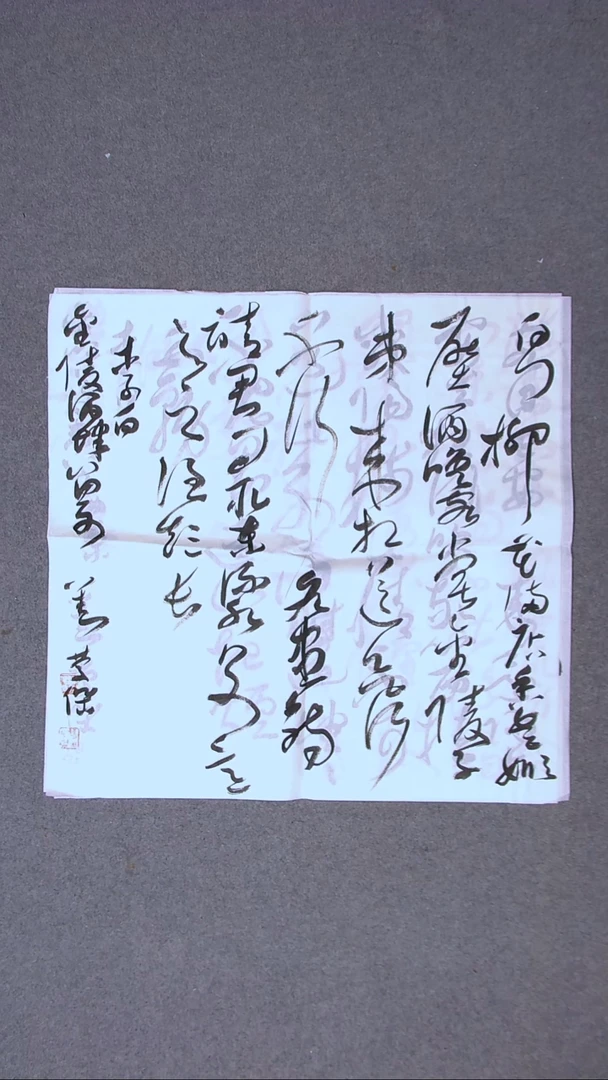 白門柳花滿店香吳姬
壓酒喚客嘗金陵子
弟來相送欲行
不行各盡觴
請君問取東流水別意
與之誰短長
李白
金陵酒肆留別 傑